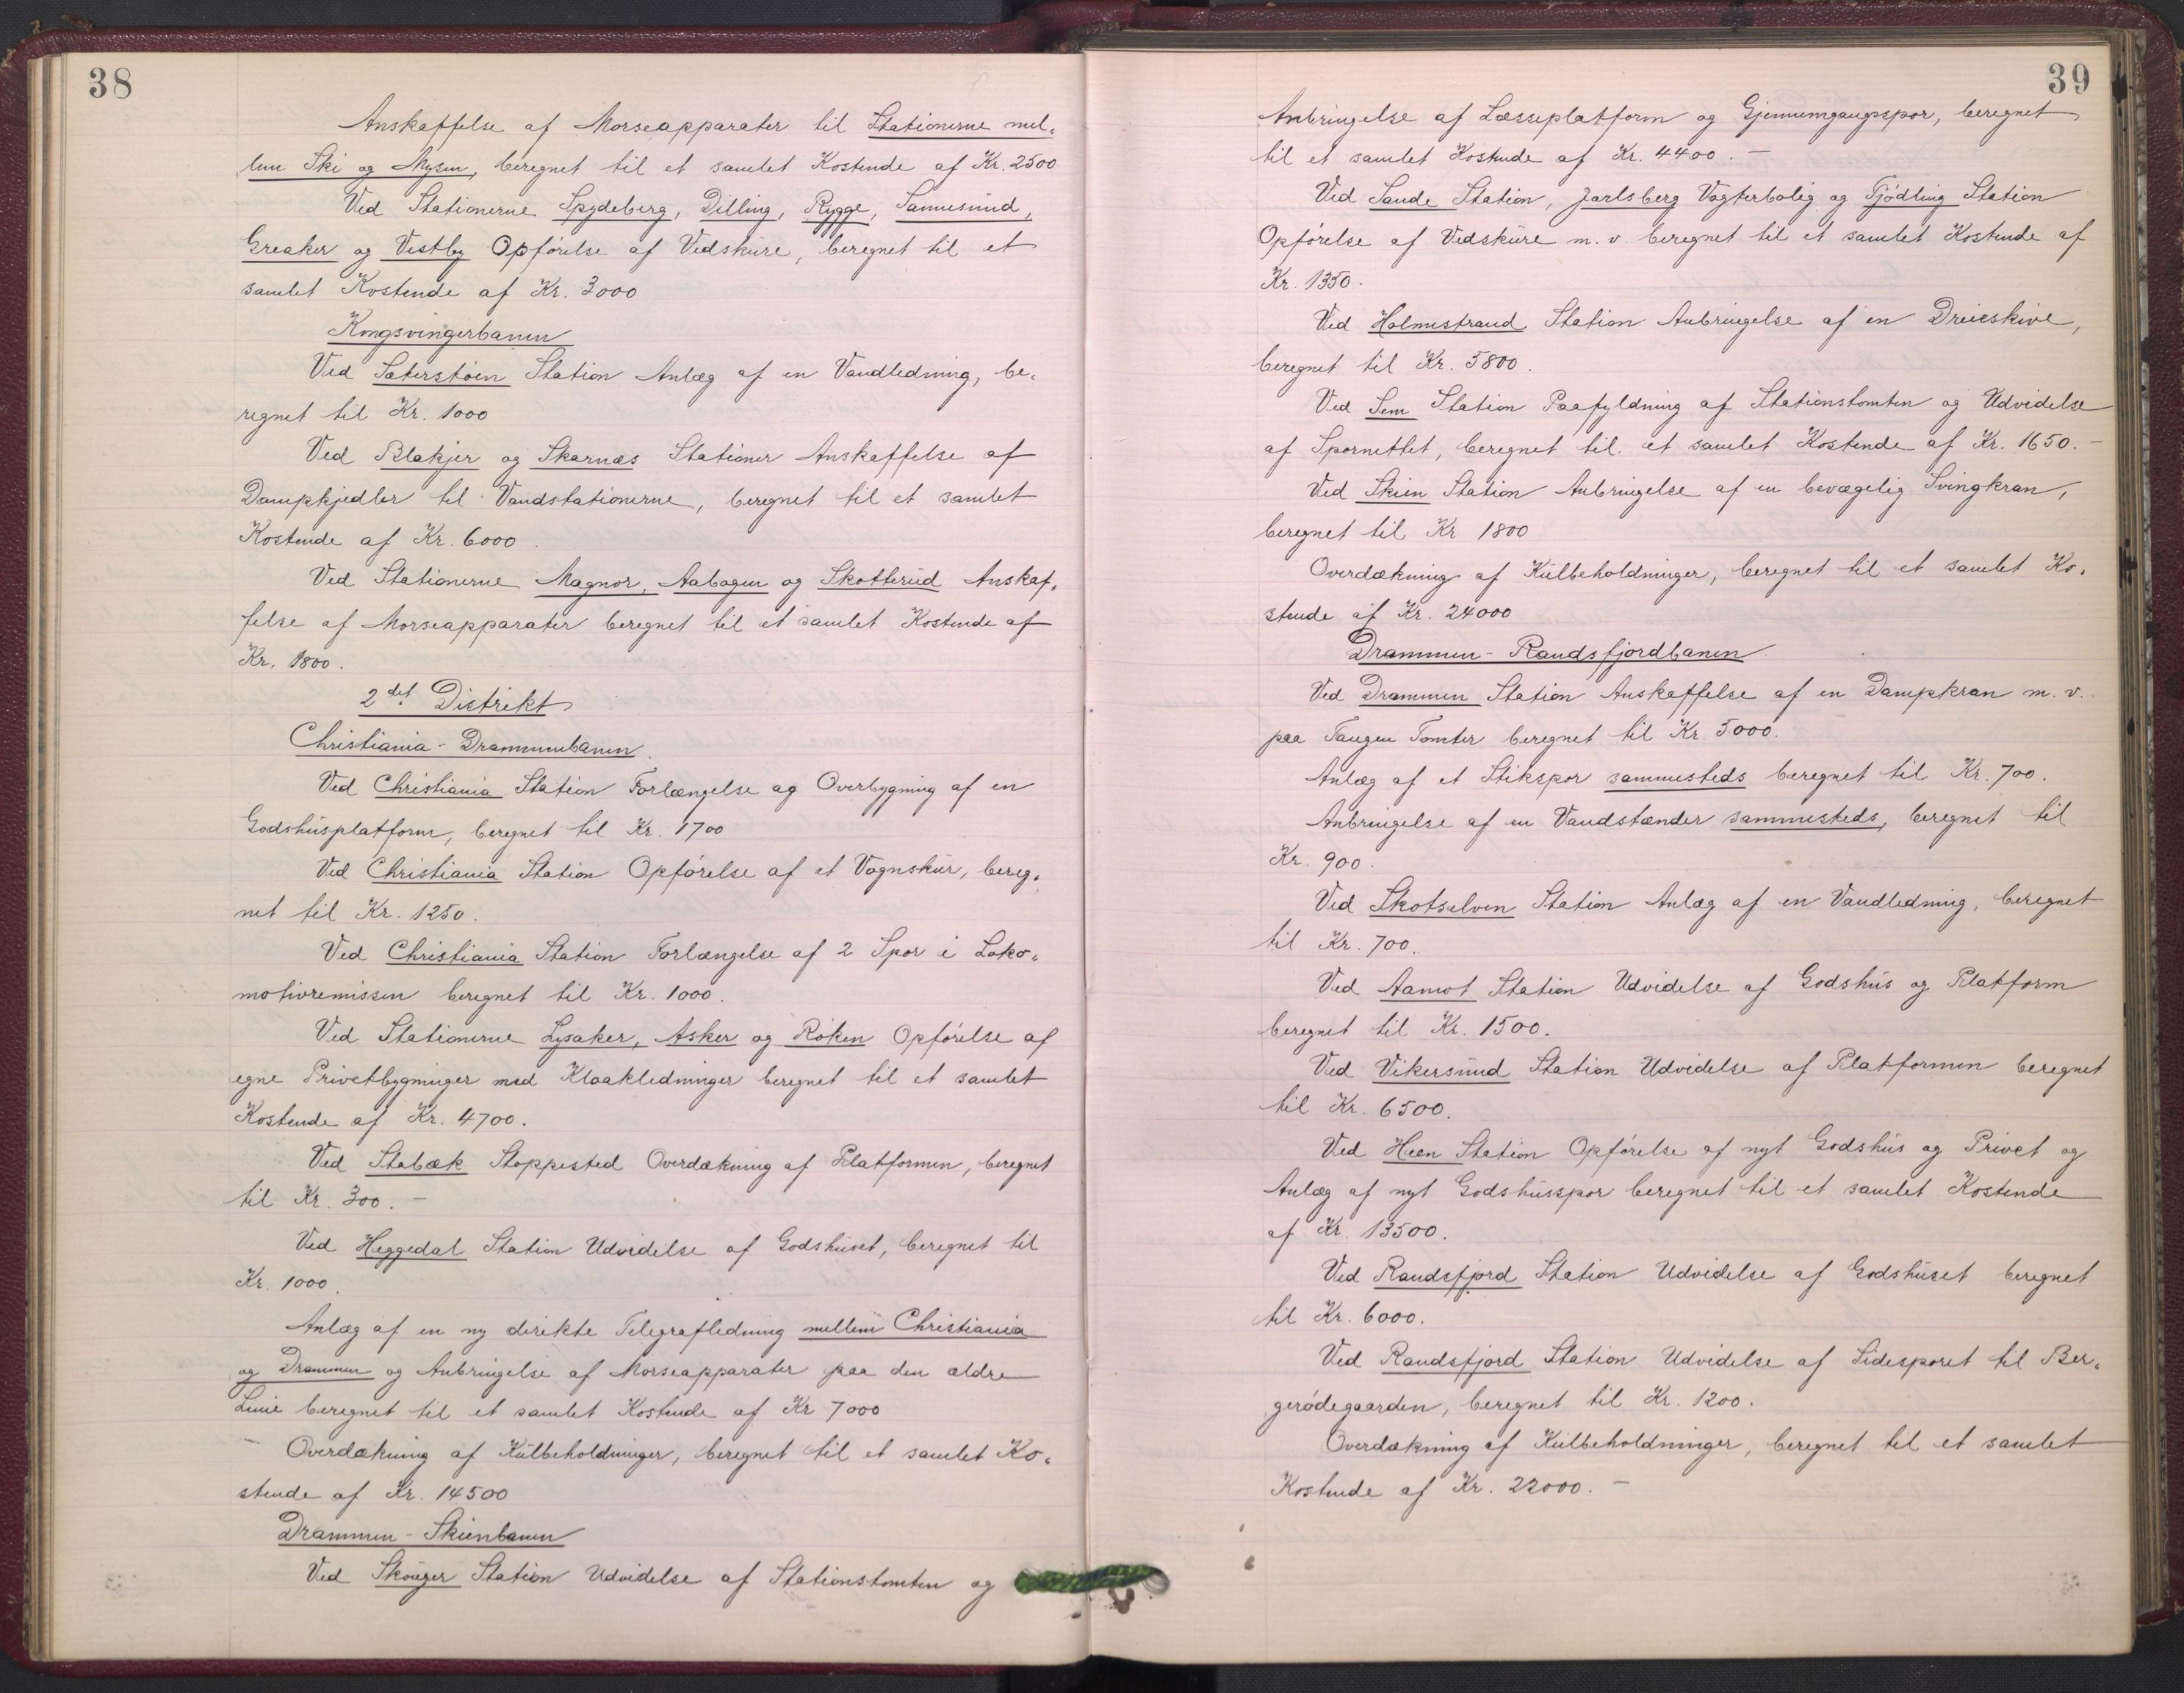 38
Anskaffelse af Morseapparater til Stationerne mel-
lem Ski og Mysen, beregnet til et samlet Kostende af Kr. 2500
Ved Stationerne Spydeberg, Dilling, Rygge, Sannesund,
Greaker og Vestby Opførelse af Vedskure, beregnet til et
samlet Kostende af Kr. 3000
Kongsvingerbanen
Ved Sæterstøen Station Anlæg af en Vandledning, be-
regnet til Kr. 1000
Ved Blakjer og Skarnæs Stationer Anskaffelse af
Dampkjedler til Vandstationerne, beregnet til et samlet
Kostende af Kr. 6000.
Ved Stationerne Magnor, Aabogen og Skotterud Anskaf-
felse af Morseapparater beregnet til et samlet Kostende af
Kr. 1800.
2det Distrikt
Christiania-Drammenbanen.
Ved Christiania Station Forlængelse og Overbygning af en
Godshusplatform, beregnet til Kr. 1700
Ved Christiania Station Opførelse af et Vognskur, bereg-
net til Kr. 1250.
Ved Christiania Station Forlængelse af 2 Spor i Loko-
motivremissen beregnet til Kr. 1000.
Ved Stationerne Lysaker, Asker og Røken Opførelse af
egne Privetbygninger med Kloakledninger beregnet til et samlet
Kostende af Kr. 4700.
Ved Stabæk Stoppested Overdækning af Platformen, beregnet
til Kr. 300. —
Ved Heggedal Station Udvidelse af Godshuset, beregnet til
Kr. 1000.
Anlæg af en ny direkte Telegrafledning mellem Christiania
og Drammen og Anbringelse af Morseapparater paa den ældre
Linie beregnet til et samlet Kostende af Kr 7000
Overdækning af Kulbeholdninger, beregnet til et samlet Ko-
stende af Kr. 14500
Drammen-Skienbanen
Ved Skouger Station Udvidelse af Stationstomten og
39
Anbringelse af Læsseplatform og Gjennemgangsspor, beregnet
til et samlet Kostende af Kr. 4400. —
Ved Sande Station, Jarlsberg Vogterbolig og Tjødling Station
Opførelse af Vedskure m. v. beregnet til et samlet Kostende af
Kr. 1350.
Ved Holmestrand Station Anbringelse af en Dreieskive,
beregnet til Kr. 5800.
Ved Sem Station Paafyldning af Stationstomten og Udvidelse
af Spornettet, beregnet til et samlet Kostende af Kr. 1650. —
Ved Skien Station Anbringelse af en bevægelig Svingkran,
beregnet til Kr 1800
Overdækning af Kulbeholdninger, beregnet til et samlet Ko-
stende af Kr. 24000
Drammen-Randsfjordbanen
Ved Drammen Station Anskaffelse af en Dampkran m. v.
paa Tangen Tomter beregnet til Kr. 5000.
Anlæg af et Stikspor sammesteds beregnet til Kr. 700.
Anbringelse af en Vandstænder sammesteds, beregnet til
Kr. 900.
Ved Skotselven Station Anlæg af en Vandledning, beregnet
til Kr. 700.
Ved Aamot Station Udvidelse af Godshus og Platform
beregnet til Kr. 1500.
Ved Vikersund Station Udvidelse af Platformen beregnet
til Kr. 6500.
Ved Heen Station Opførelse af nyt Godshus og Privet og
Anlæg af nyt Godshusspor beregnet til et samlet Kostende
af Kr. 13500.
Ved Randsfjord Station Udvidelse af Godshuset beregnet
til Kr. 6000.
Ved Randsfjord Station Udvidelse af Sidesporet til Ber-
gerødegaarden, beregnet til Kr. 1200.
Overdækning af Kulbeholdninger, beregnet til et samlet
Kostende af Kr. 22000. —